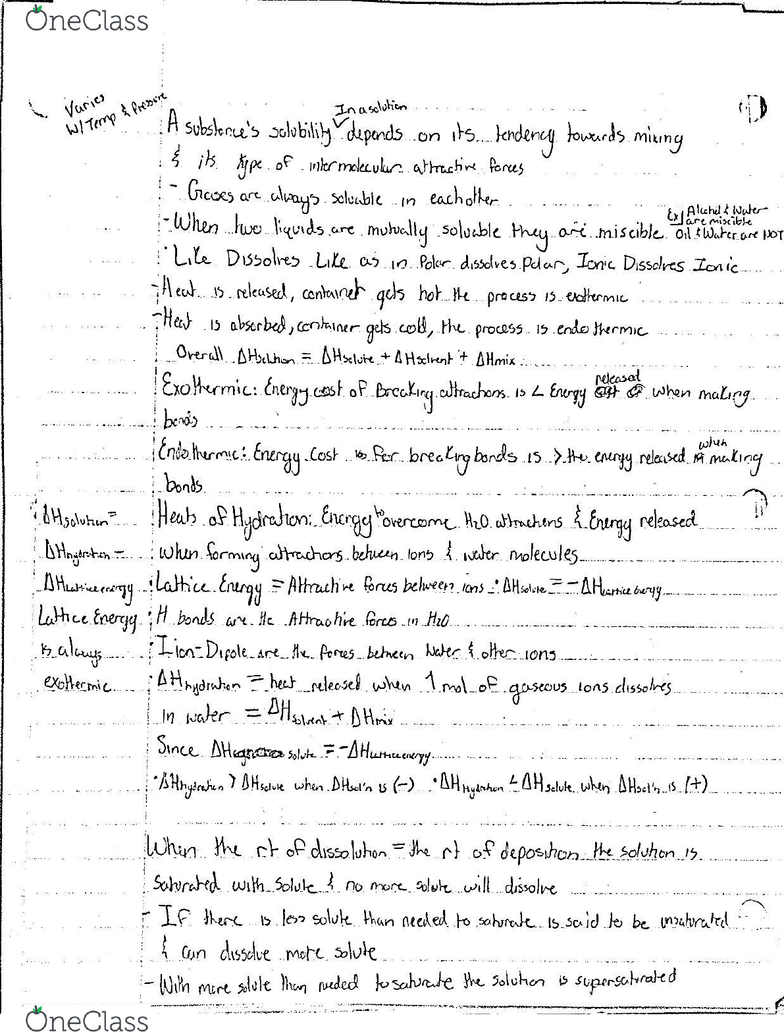 OneClass
Varies
W/ Temp & Pressure
In a solution
A substance's solubility depends on its tendency towards mixing
& its type of intermolecular attractive forces
- Gases are always soluable in eachother
Ex/ Alcohol & Water
are miscible
- When two liquids are mutually soluable they are miscible Oil & Water are NOT
· Like Dissolves Like as in Polar dissolves Polar, Ionic Dissolves Ionic
- Heat is released, container gets hot the process is exothermic
- Heat is absorbed, container gets cold, the process is endothermic
Overall ΔHsolution = ΔHsolute + ΔHsolvent + ΔHmix
Exothermic: Energy cost of Breaking attractions is < Energy released when making
bonds
Endothermic: Energy Cost for breaking bonds is > the energy released when making
bonds
ΔHsolution =
ΔHhydration -
ΔHlattice energy
Lattice Energy
is always
exothermic
Heats of Hydration: Energy to overcome H2O attractions & Energy released
when forming attractions between Ions & water molecules
· Lattice Energy = Attractive forces between ions · ΔHsolute = -ΔHlattice energy
· H bonds are the Attractive forces in H2O
· Iion-Dipole are the forces between Water & other ions
· ΔHhydration = heat released when 1 mol of gaseous ions dissolves
in water = ΔHsolvent + ΔHmix
Since ΔH solute = -ΔHlattice energy
· ΔHhydration > ΔHsolute when ΔHsol'n is (-) · ΔHHydration < ΔHsolute when ΔHsol'n is (+)
When the rt of dissolution = the rt of deposition the solution is
saturated with solute & no more solute will dissolve
- If there is less solute than needed to saturate is said to be unsaturated
& can dissolve more solute
- With more solute than needed to saturate the solution is supersaturated
OneClass